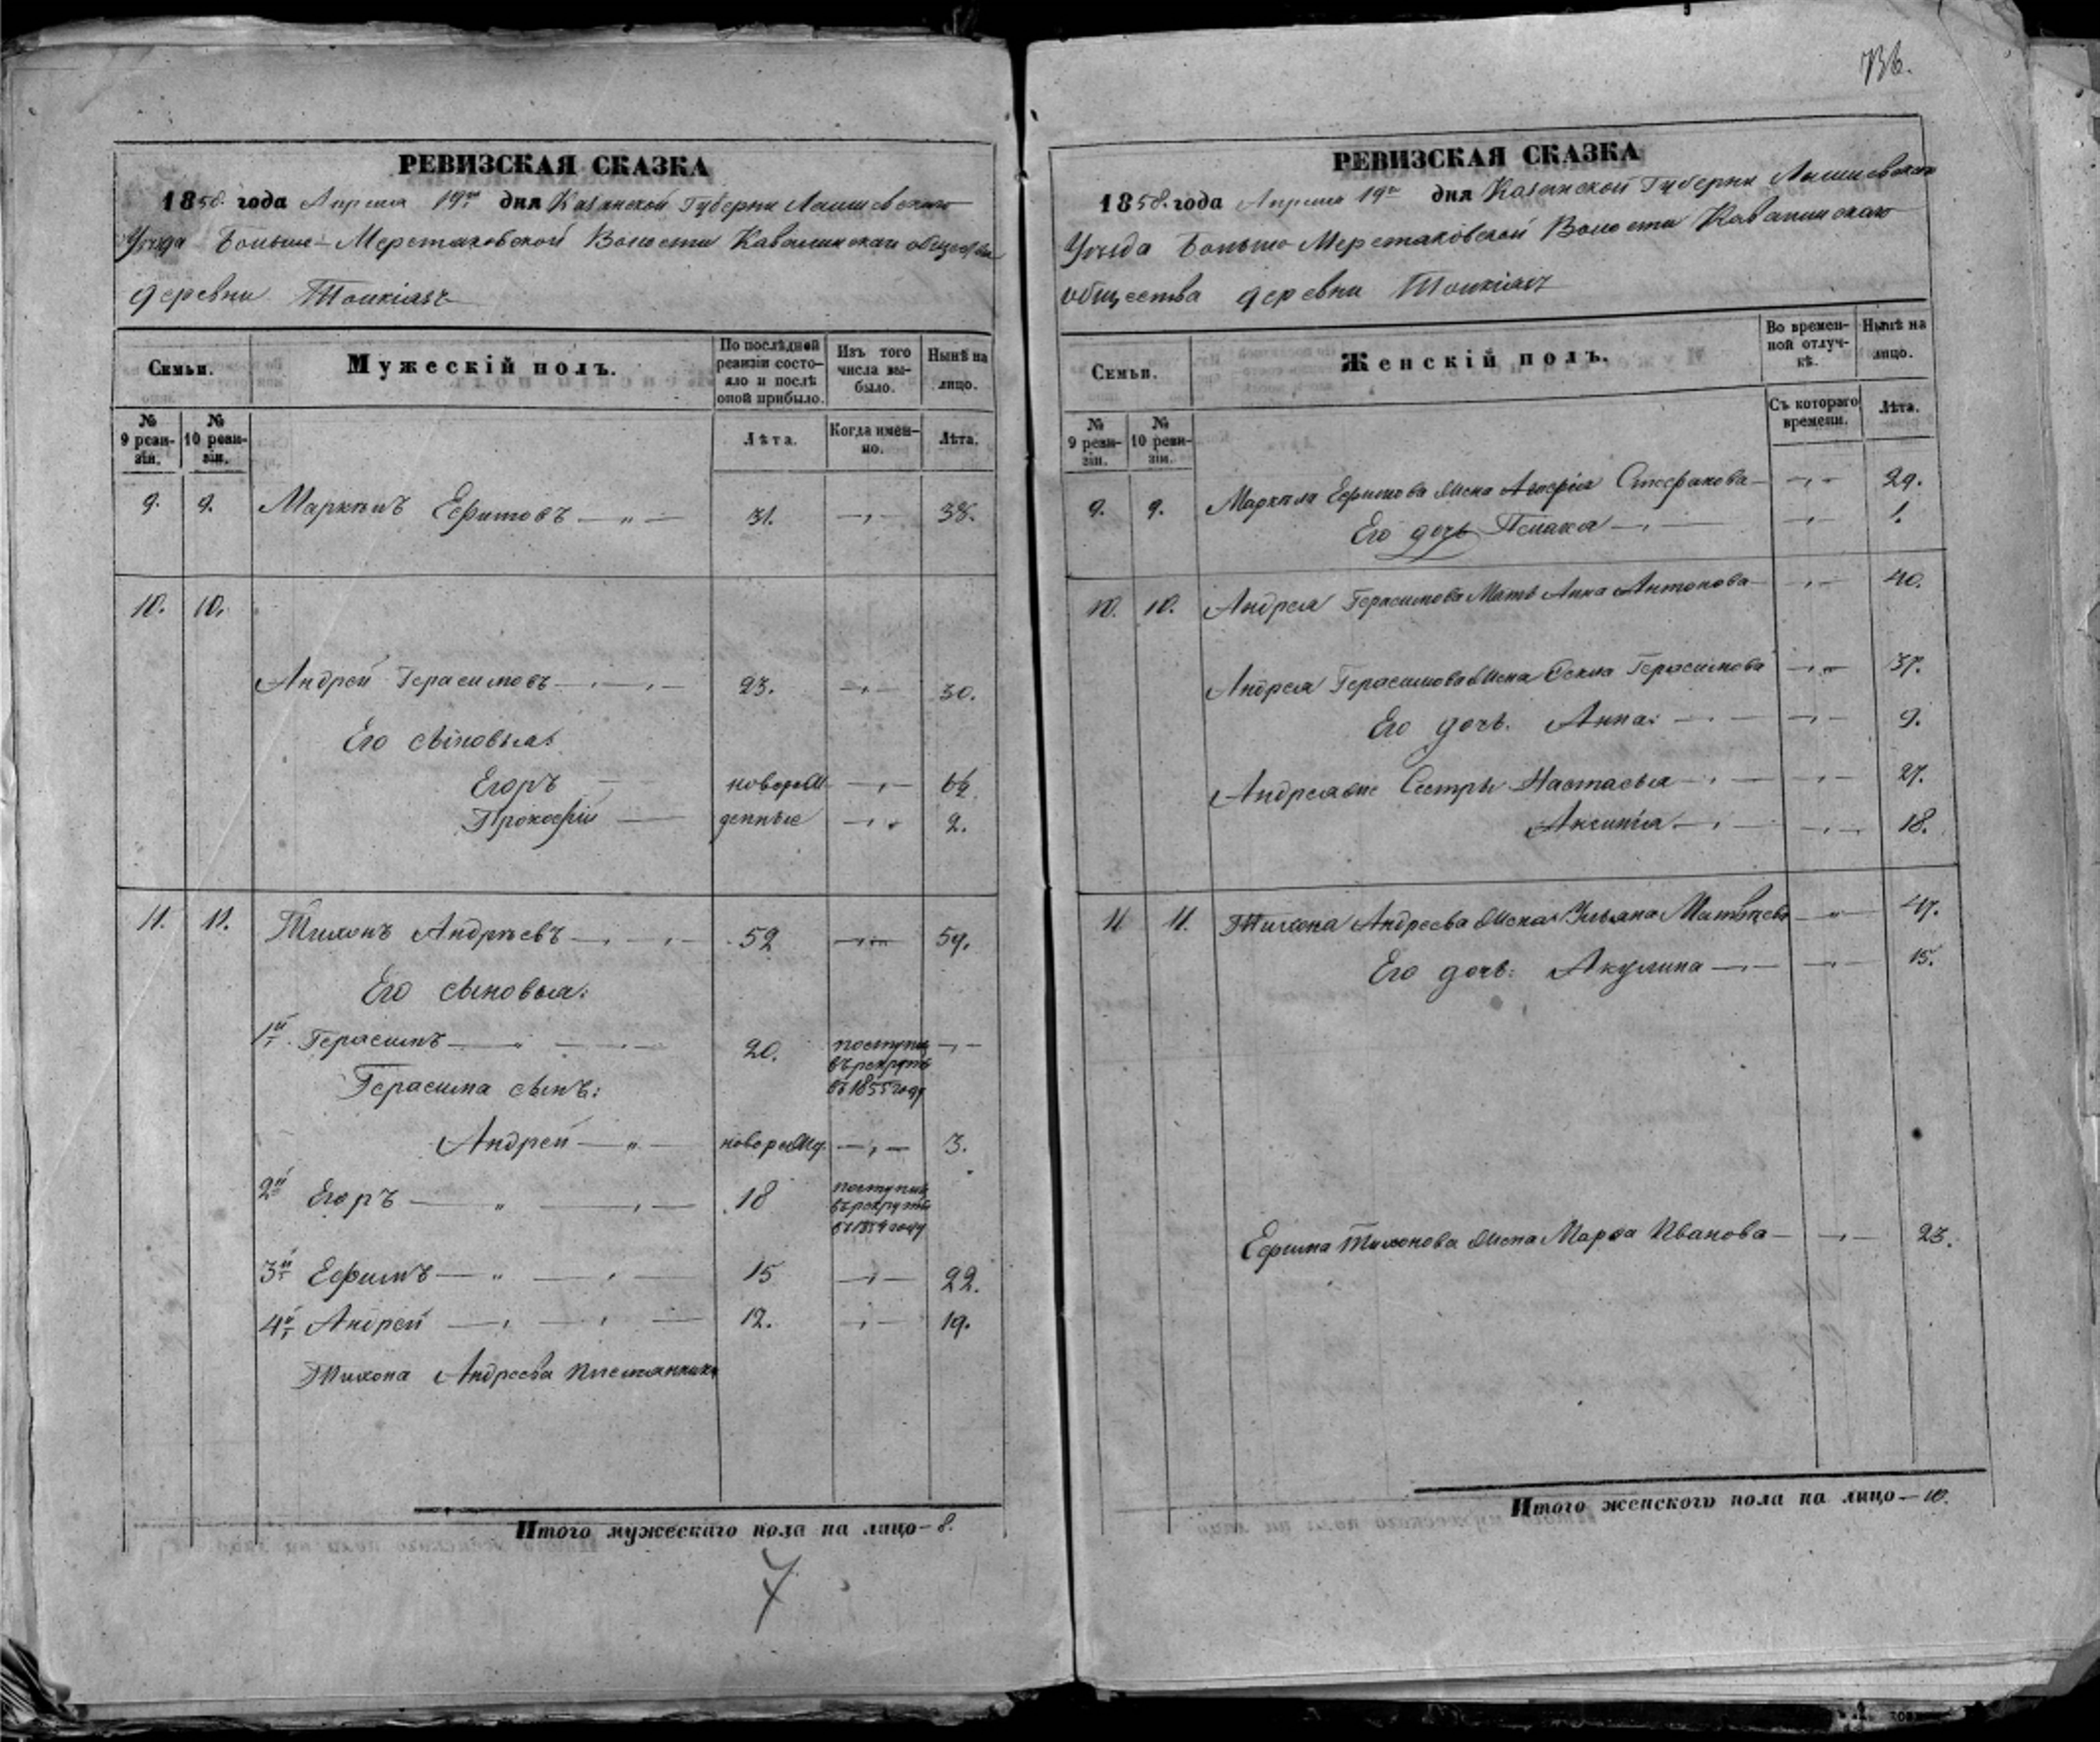 736.
РЕВИЗСКАЯ СКАЗКА
1858. года Апреля 19го дня Казанской Губерни Лаишевскаго
Уезда Больше-Меретяковской Волости Кавалинскаго общества
деревни
Семьи.
Мужескій полъ.
По последней ревизіи состояло и после оной прибыло.
Изъ того числа выбыло.
Ныне на лицо.
№ 9 ревизіи.
№ 10 ревизіи.
Лѣта.
Когда именно.
Лѣта.
9. 9. Маркелъ Ефимовъ — „ — 31. — „ — 38.
10. 10.
Андрей Герасимовъ — „ — 23. — „ — 30.
Его сыновья:
Егоръ — новорож — „ — 6½
Прокофій — денные — „ — 2.
11. 11. Тихонъ Андреевъ — „ — 52 — „ — 59.
Его сыновья:
1й. Герасимъ — „ — 20. поступилъ въ рекруты въ 1855 году — „ —
Герасима сынъ:
Андрей — „ — новорожд. — „ — 3.
2й Егоръ — „ — 18 поступилъ въ рекруты въ 1854 году
3й Ефимъ — „ — 15 — „ — 22.
4й Андрей — „ — 12. — „ — 19.
Тихона Андреева племянники
Итого мужескаго пола на лицо — 8.
7
РЕВИЗСКАЯ СКАЗКА
1858. года Апреля 19го дня Казанской Губерни Лаишевскаго
Уезда Больше Меретяковской Волости Кавалинскаго
общества деревни
Семьи.
Женскій полъ.
Во временной отлучкѣ.
Нынѣ на лицо.
№ 9 ревизіи.
№ 10 ревизіи.
Съ котораго времени.
Лѣта.
9. 9. Маркела Ефимова жена Стефанова — „ — 29.
Его дочь — „ — 1.
10. 10. Андрея Герасимова Мать Анна Антонова — „ — 40.
Андрея Герасимова жена Фекла Герасимова — „ — 37.
Его дочь. Анна: — „ — 9.
Андрея же Сестры Настасья — „ — 27.
Аксинья — „ — 18.
11 11. Тихона Андреева жена Ульяна Матвеева — „ — 47.
Его дочь: Акулина — „ — 15.
Ефима Тихонова жена Марѳа Иванова — „ — 23.
Итого женского пола на лицо — 10.